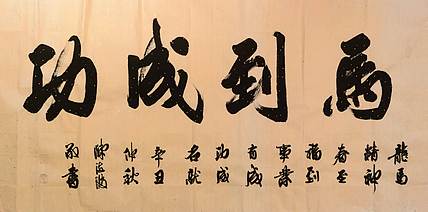 馬到成功
龍馬
精神
春至
福到
事業
有成
功成
名就
辛丑
仲秋
陳
敬書